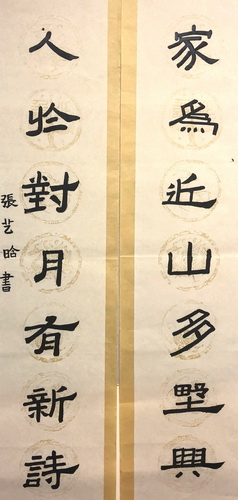 家爲近山多野興
人於對月有新詩
張艺晗書